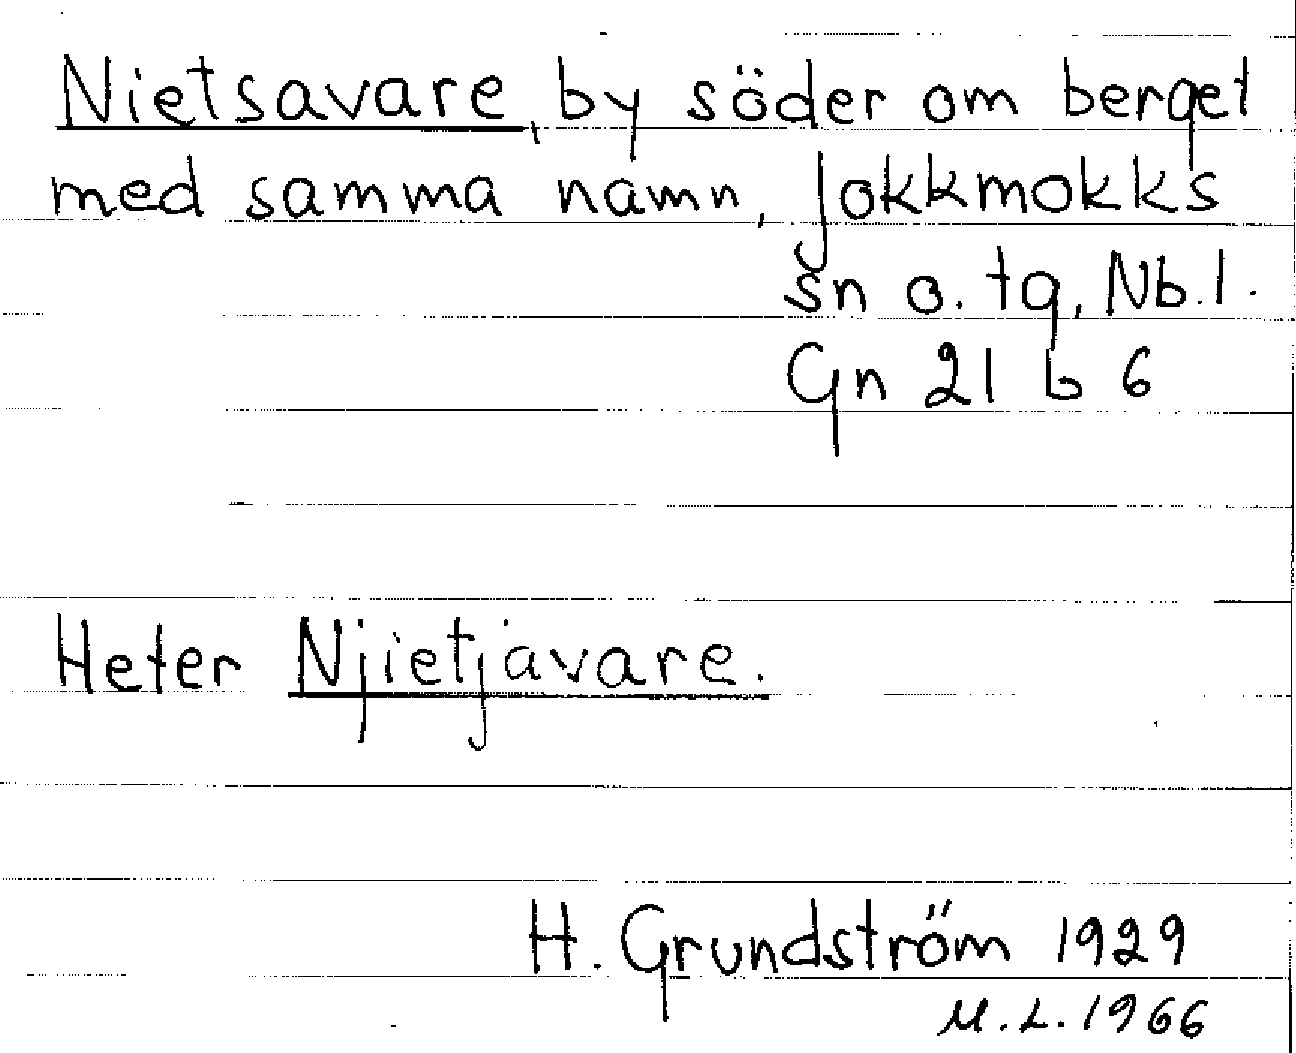 Nietsavare, by söder om berget
med samma namn, Jokkmokks
sn o. tg, Nb. l.
Gn 21 b 6
Heter Njietjavare.
H. Grundström 1929
M. L. 1966